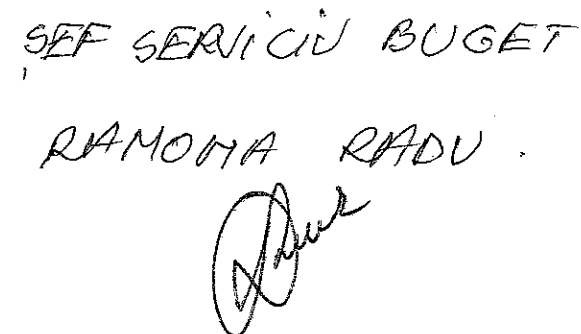 ȘEF SERVICIU BUGET
RAMONA RADU.